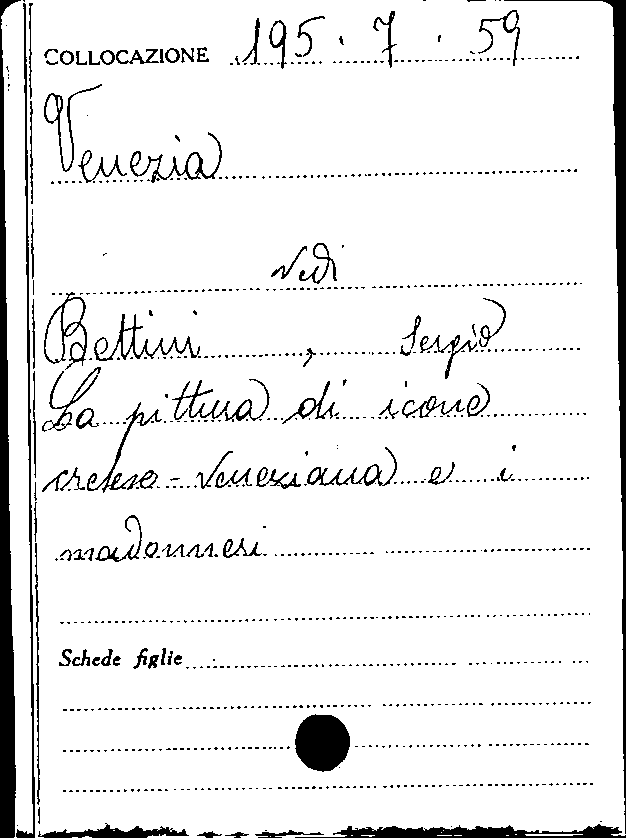 COLLOCAZIONE 195.7.59
Venezia
Vedi
Bettini, Sergio
La pittura di icone
cretese-veneziana e i
madonneri
Schede figlie